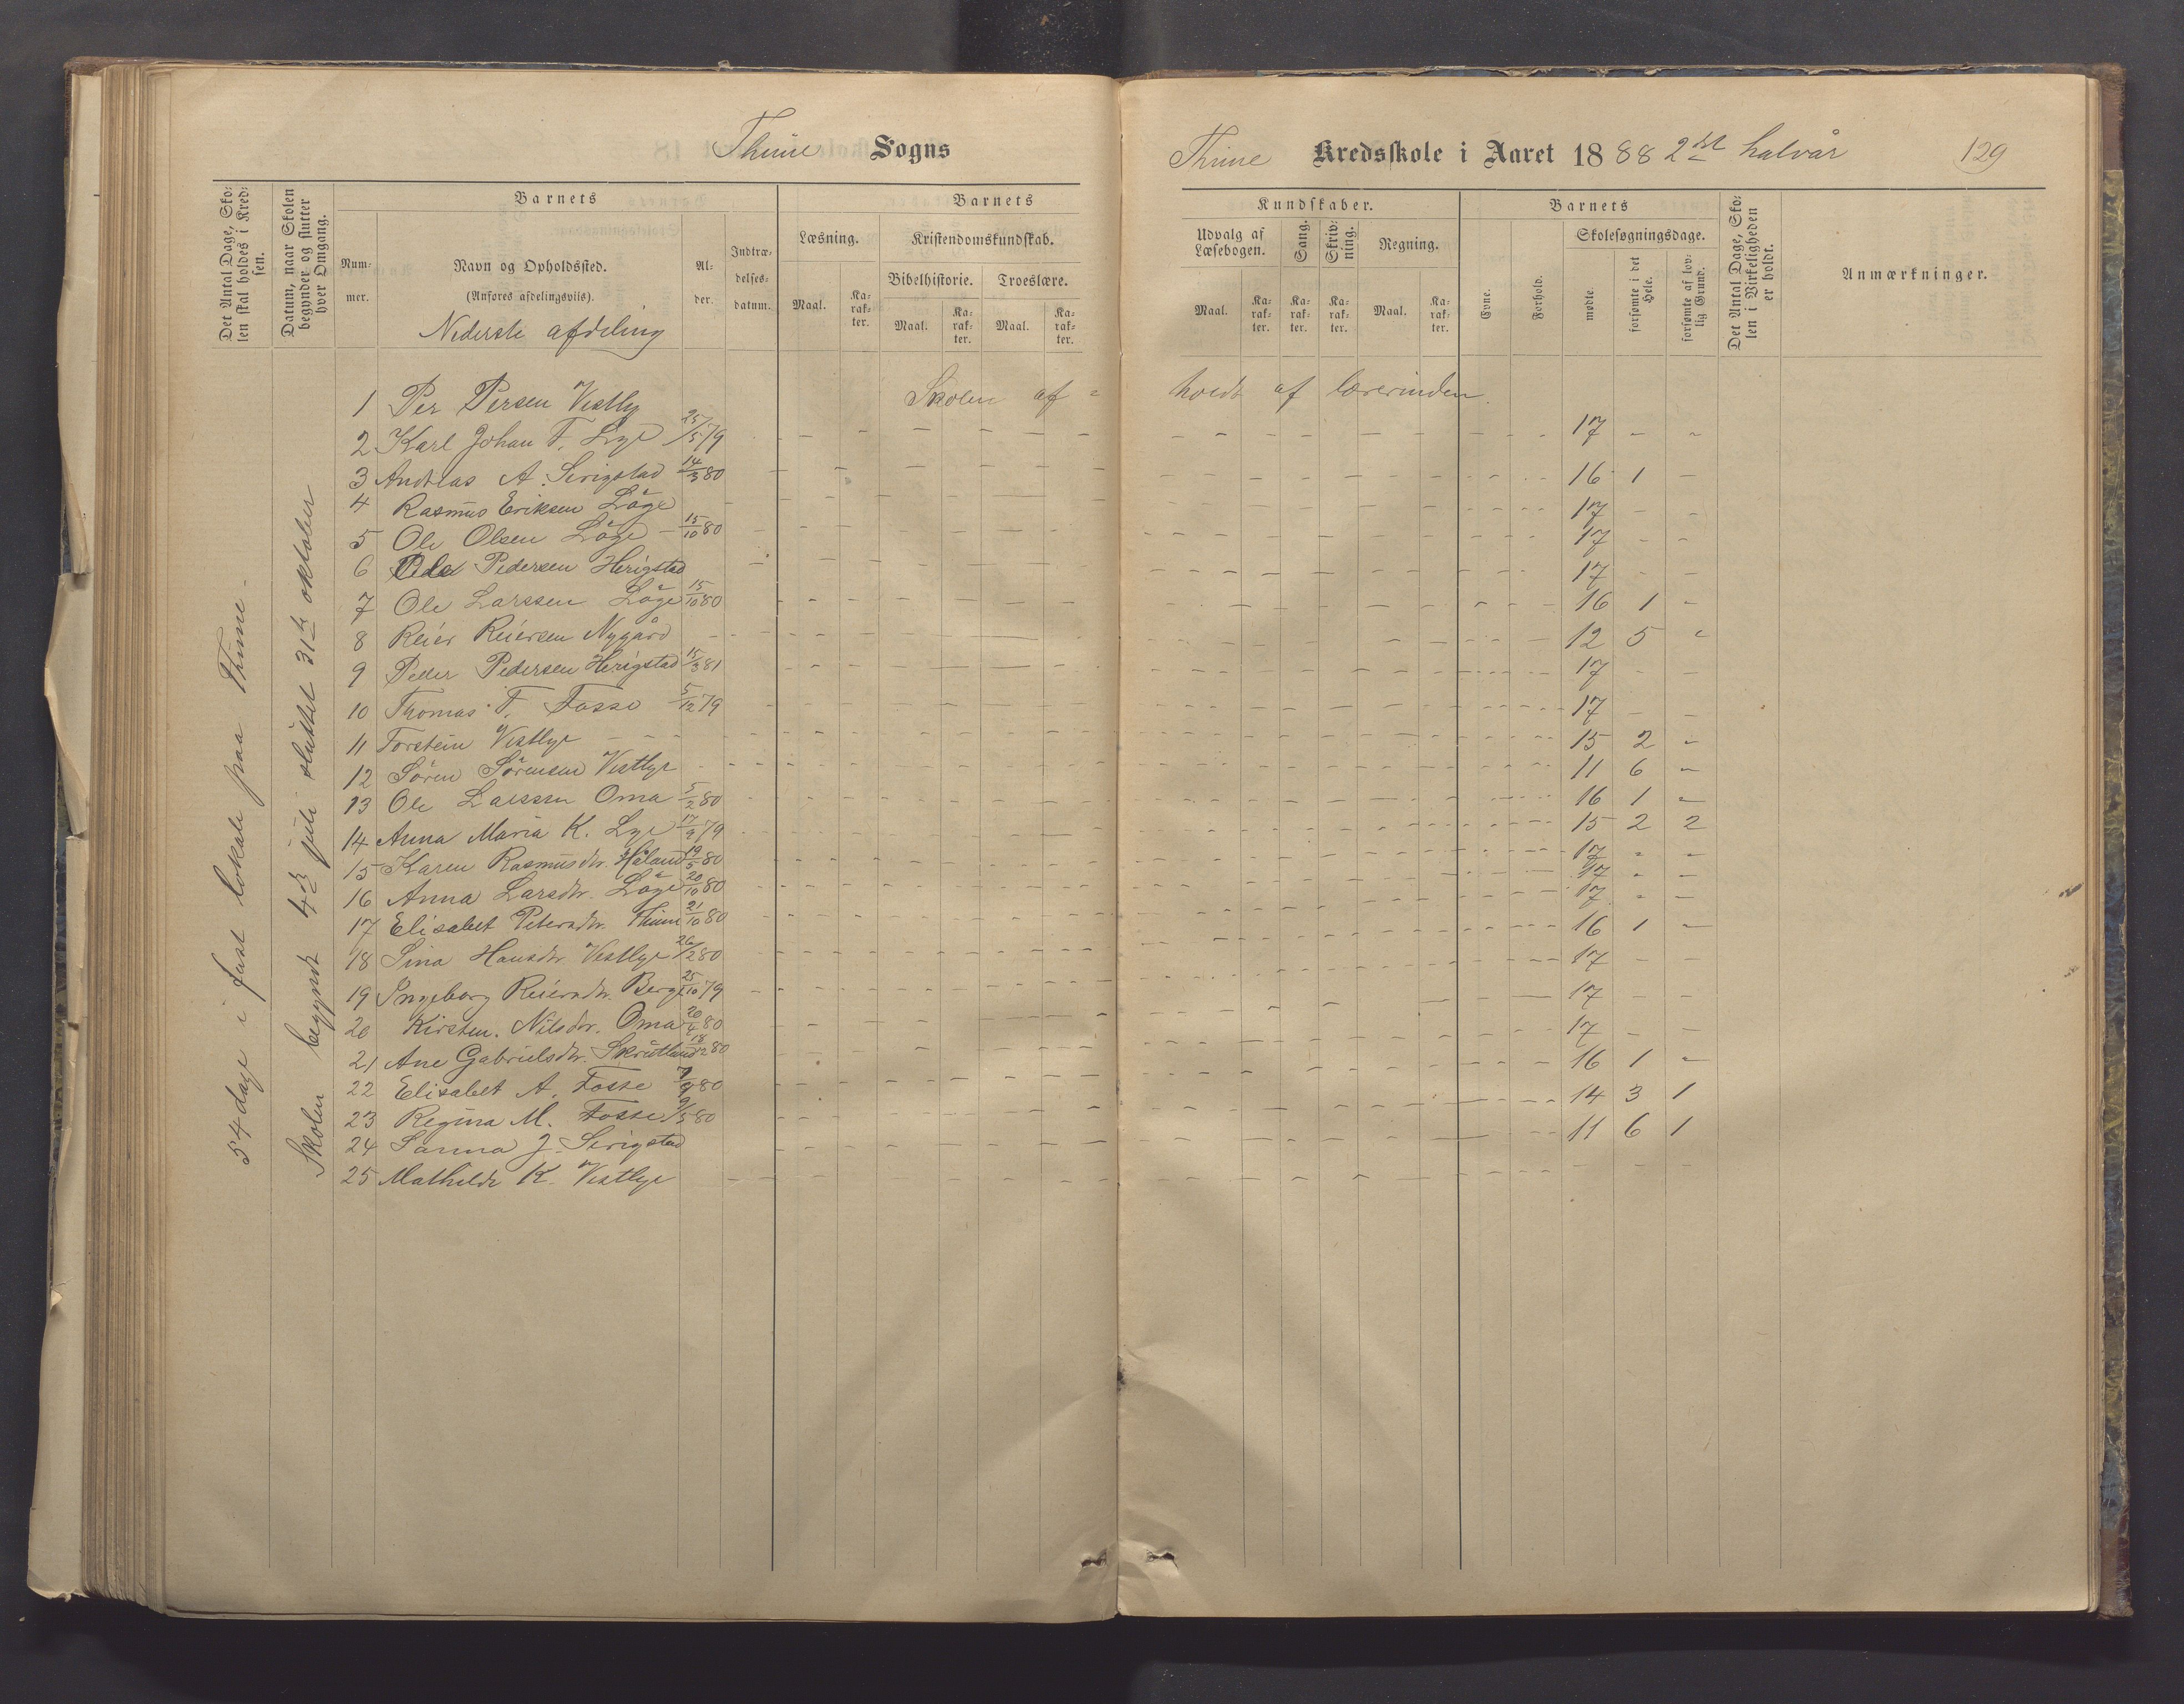 Thime Sogns
Thime Kredsskole i Aaret 1888 2det halvår 129
Det Antal Dage, Sko-
len skal holdes i Kred-
sen.
Datum, naar Skolen
begynder og slutter
hver Omgang.
Barnets
Num-
mer.
Navn og Opholdssted.
(Anføres afdelingsvis).
Nederste afdeling
Al-
der.
Indtræ-
delses-
datum.
Barnets
Læsning.
Maal.
Ka-
rak-
ter.
Kristendomskundskab.
Bibelhistorie.
Maal.
Ka-
rak-
ter.
Troeslære.
Maal.
Ka-
rak-
ter.
Kundskaber.
Udvalg af
Læsebogen.
Maal.
Ka-
rak-
ter.
Sang.
Ka-
rak-
ter.
Skriv-
ning.
Ka-
rak-
ter.
Regning.
Maal.
Ka-
rak-
ter.
Barnets
Evne.
Forhold.
Skolesøgningsdage.
mødte.
forsømte i det
Hele.
forsømte af lov-
lig Grund.
Det Antal Dage, Sko-
len i Virkeligheden
er holdt.
Anmærkninger.
54 dage i fast lokale paa Thime.
Skolen begyndt 4de juli sluttet 31te oktober
Skolen af- holdt af lærerinden.
1 Per Persen Vestly
2 Karl Johan T. Lye 25/5 79 17 - -
3 Andreas A. Serigstad 14/3 80 16 1 -
4 Rasmus Eriksen Löge 17 - -
5 Ole Olsen Löge - 15/10 80 17 - -
6 Peder Pedersen Herigstad 17 - -
7 Ole Larssen Löge 15/10 80 16 1 -
8 Reier Reiersen Nygård 12 5 -
9 Peder Pedersen Herigstad 15/3 81 17 - -
10 Thomas T. Fosse 5/12 79 17 - -
11 Torstein Vestlye 15 2 -
12 Sören Sörensen Vestlye 11 6 -
13 Ole Larssen Oma 5/2 80 16 1 -
14 Anna Maria K. Lye 17/9 79 15 2 2
15 Karen Rasmusdtr. Håland 19/5 80 17 - -
16 Anna Larsdtr. Löge 20/10 80 17 - -
17 - -
17 Elisabet Petersdtr. Thime 21/10 80 16 1 -
18 Sina Hansdtr Vestlye 26/2 80 17 - -
19 Ingeborg Reiersdtr. Berge 25/10 79 17 - -
20 Kirsten. Nilsdtr. Oma 20/4 80 17 - -
21 Ane Gabrielsdtr. Skrutland 18/12 80 16 1 -
22 Elisabet A. Fosse 7/9 80 14 3 1
23 Regina M. Fosse 9/5 80 11 6 1
24 Sanna J. Serigstad
25 Mathilde K. Vestlye